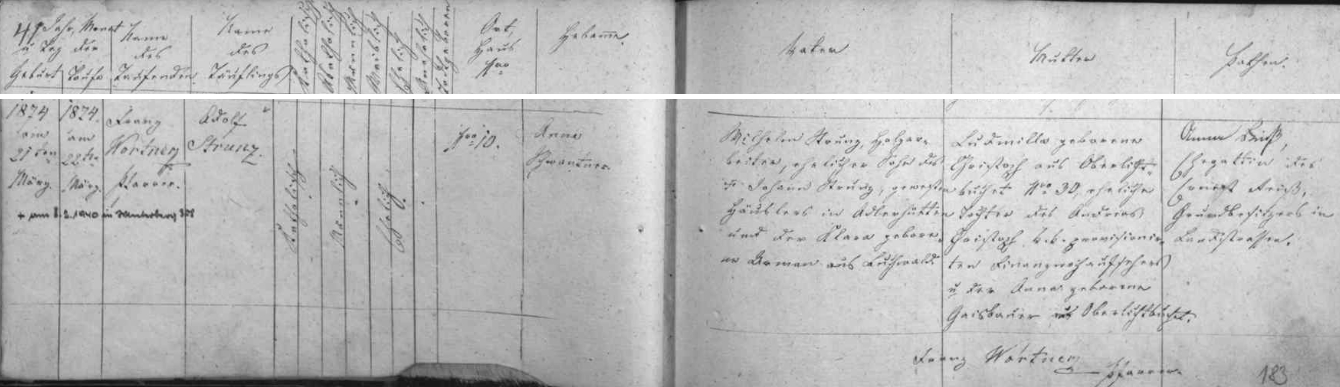 41 Jahr, Monat
u. Tag der
Geburt Taufe
Name
des
Taufenden.
Name
des
Täuflings
Katholisch
Akatholisch
Männlich
Weiblich
Ehelich
Unehelich
Ort,
Haus
Nro
Hebamme.
Vater
Mutter
Pathen.
1874
am
21ten
März.
1874.
am
22te.
März.
Franz
Wortner
Pfarrer.
Adolf
Strunz.
Katholisch
Männlich
Ehelich
Nro 10.
Anna
Schwantner
+ am 8.2.1940 in
Wilhelm Strunz, Holzar-
beiter, ehelicher Sohn des
Johann Strunz, gewesten
Häuslers in Adlerhütten
und der Klara gebore-
nen aus Buchwald
Ludmilla geborene
Christoph aus Oberlicht-
buchet Nro 30, eheliche
Tochter des Andreas
Christoph k.k. provisionir-
ten Finanzwachaufsehers
u. der Anna geborene
Gaisbauer aus Oberlichtbuchet.
Anna
Ehegattin des
Grundbesitzers in
Landstrassen.
Franz Wortner
Pfarrer
183